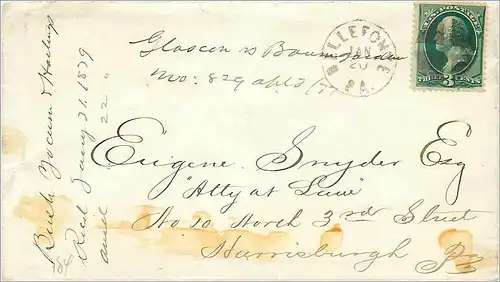 Bush Yocum & Hastings
Recd Jany 21. 1879
ansd 22 "
Glascon vs
No: 829 apl
BELLEFONTE
JAN
20
PA.
U.S. POSTAGE
THREE 3 CENTS
Eugene Snyder Esq
"Atty at Law"
No 10 North 3rd Street
Harrisburgh Pa